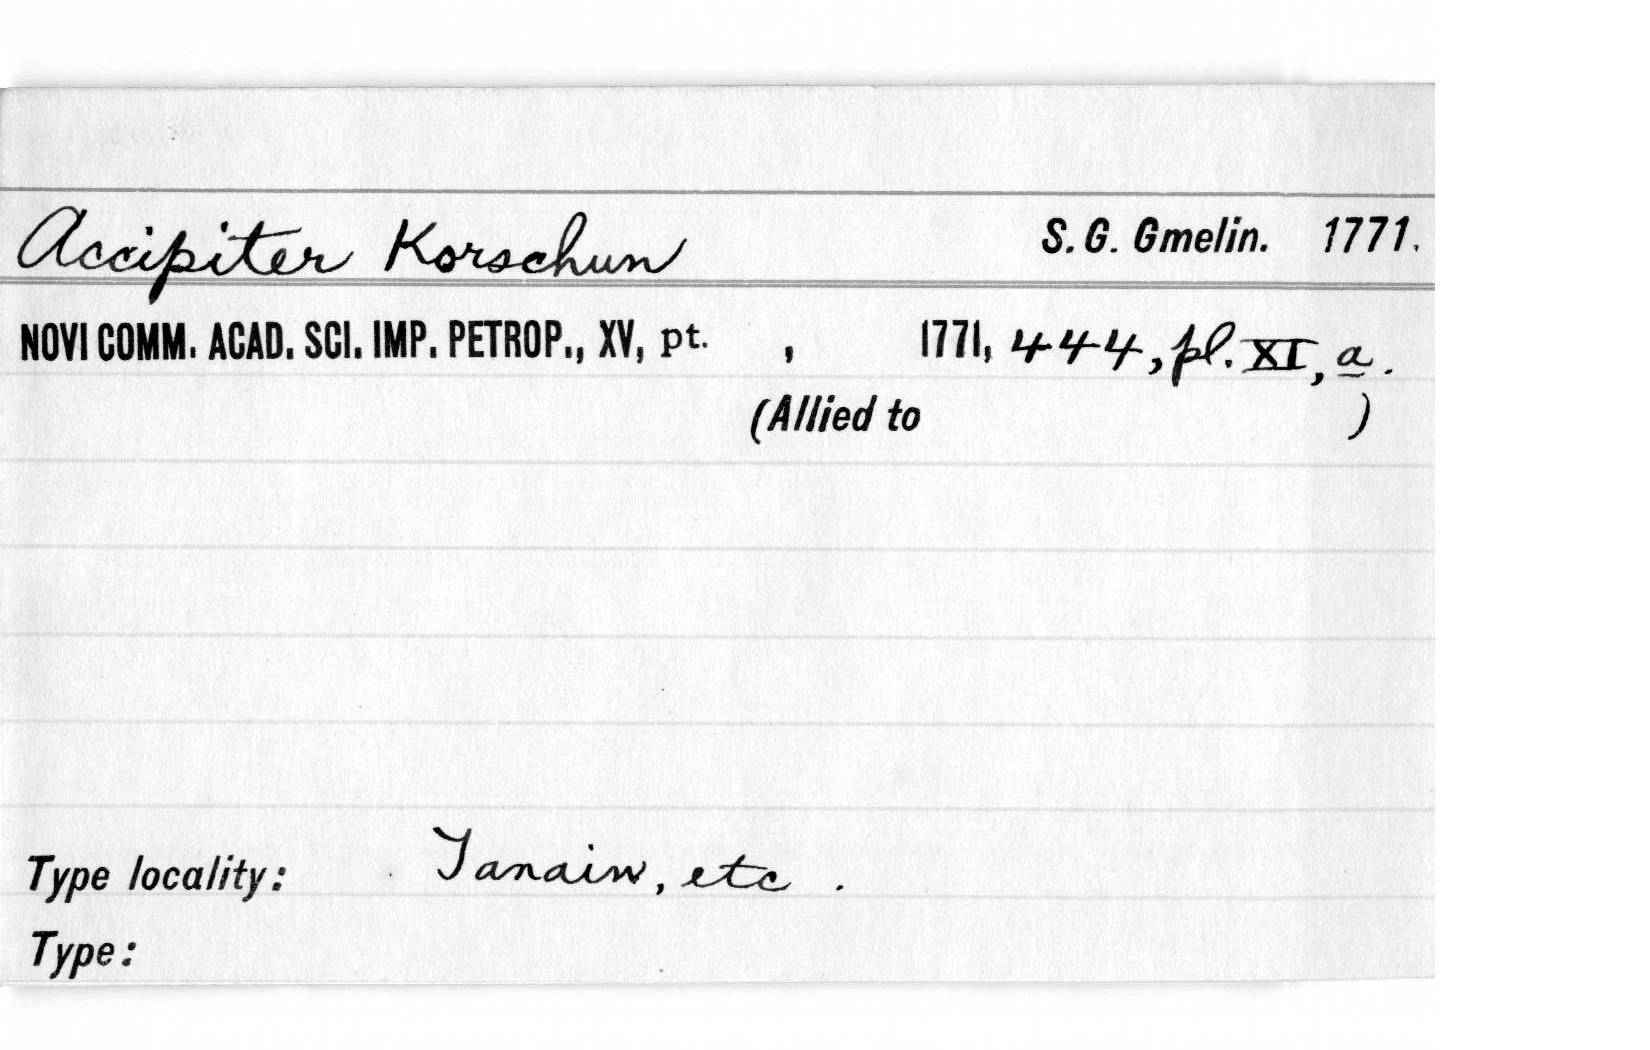 Accipiter Korschun S. G. Gmelin. 1771.
NOVI COMM. ACAD. SCI. IMP. PETROP., XV, pt. , 1771, 444, pl. XI, a.
(Allied to )
Type locality: Tanain, etc .
Type: